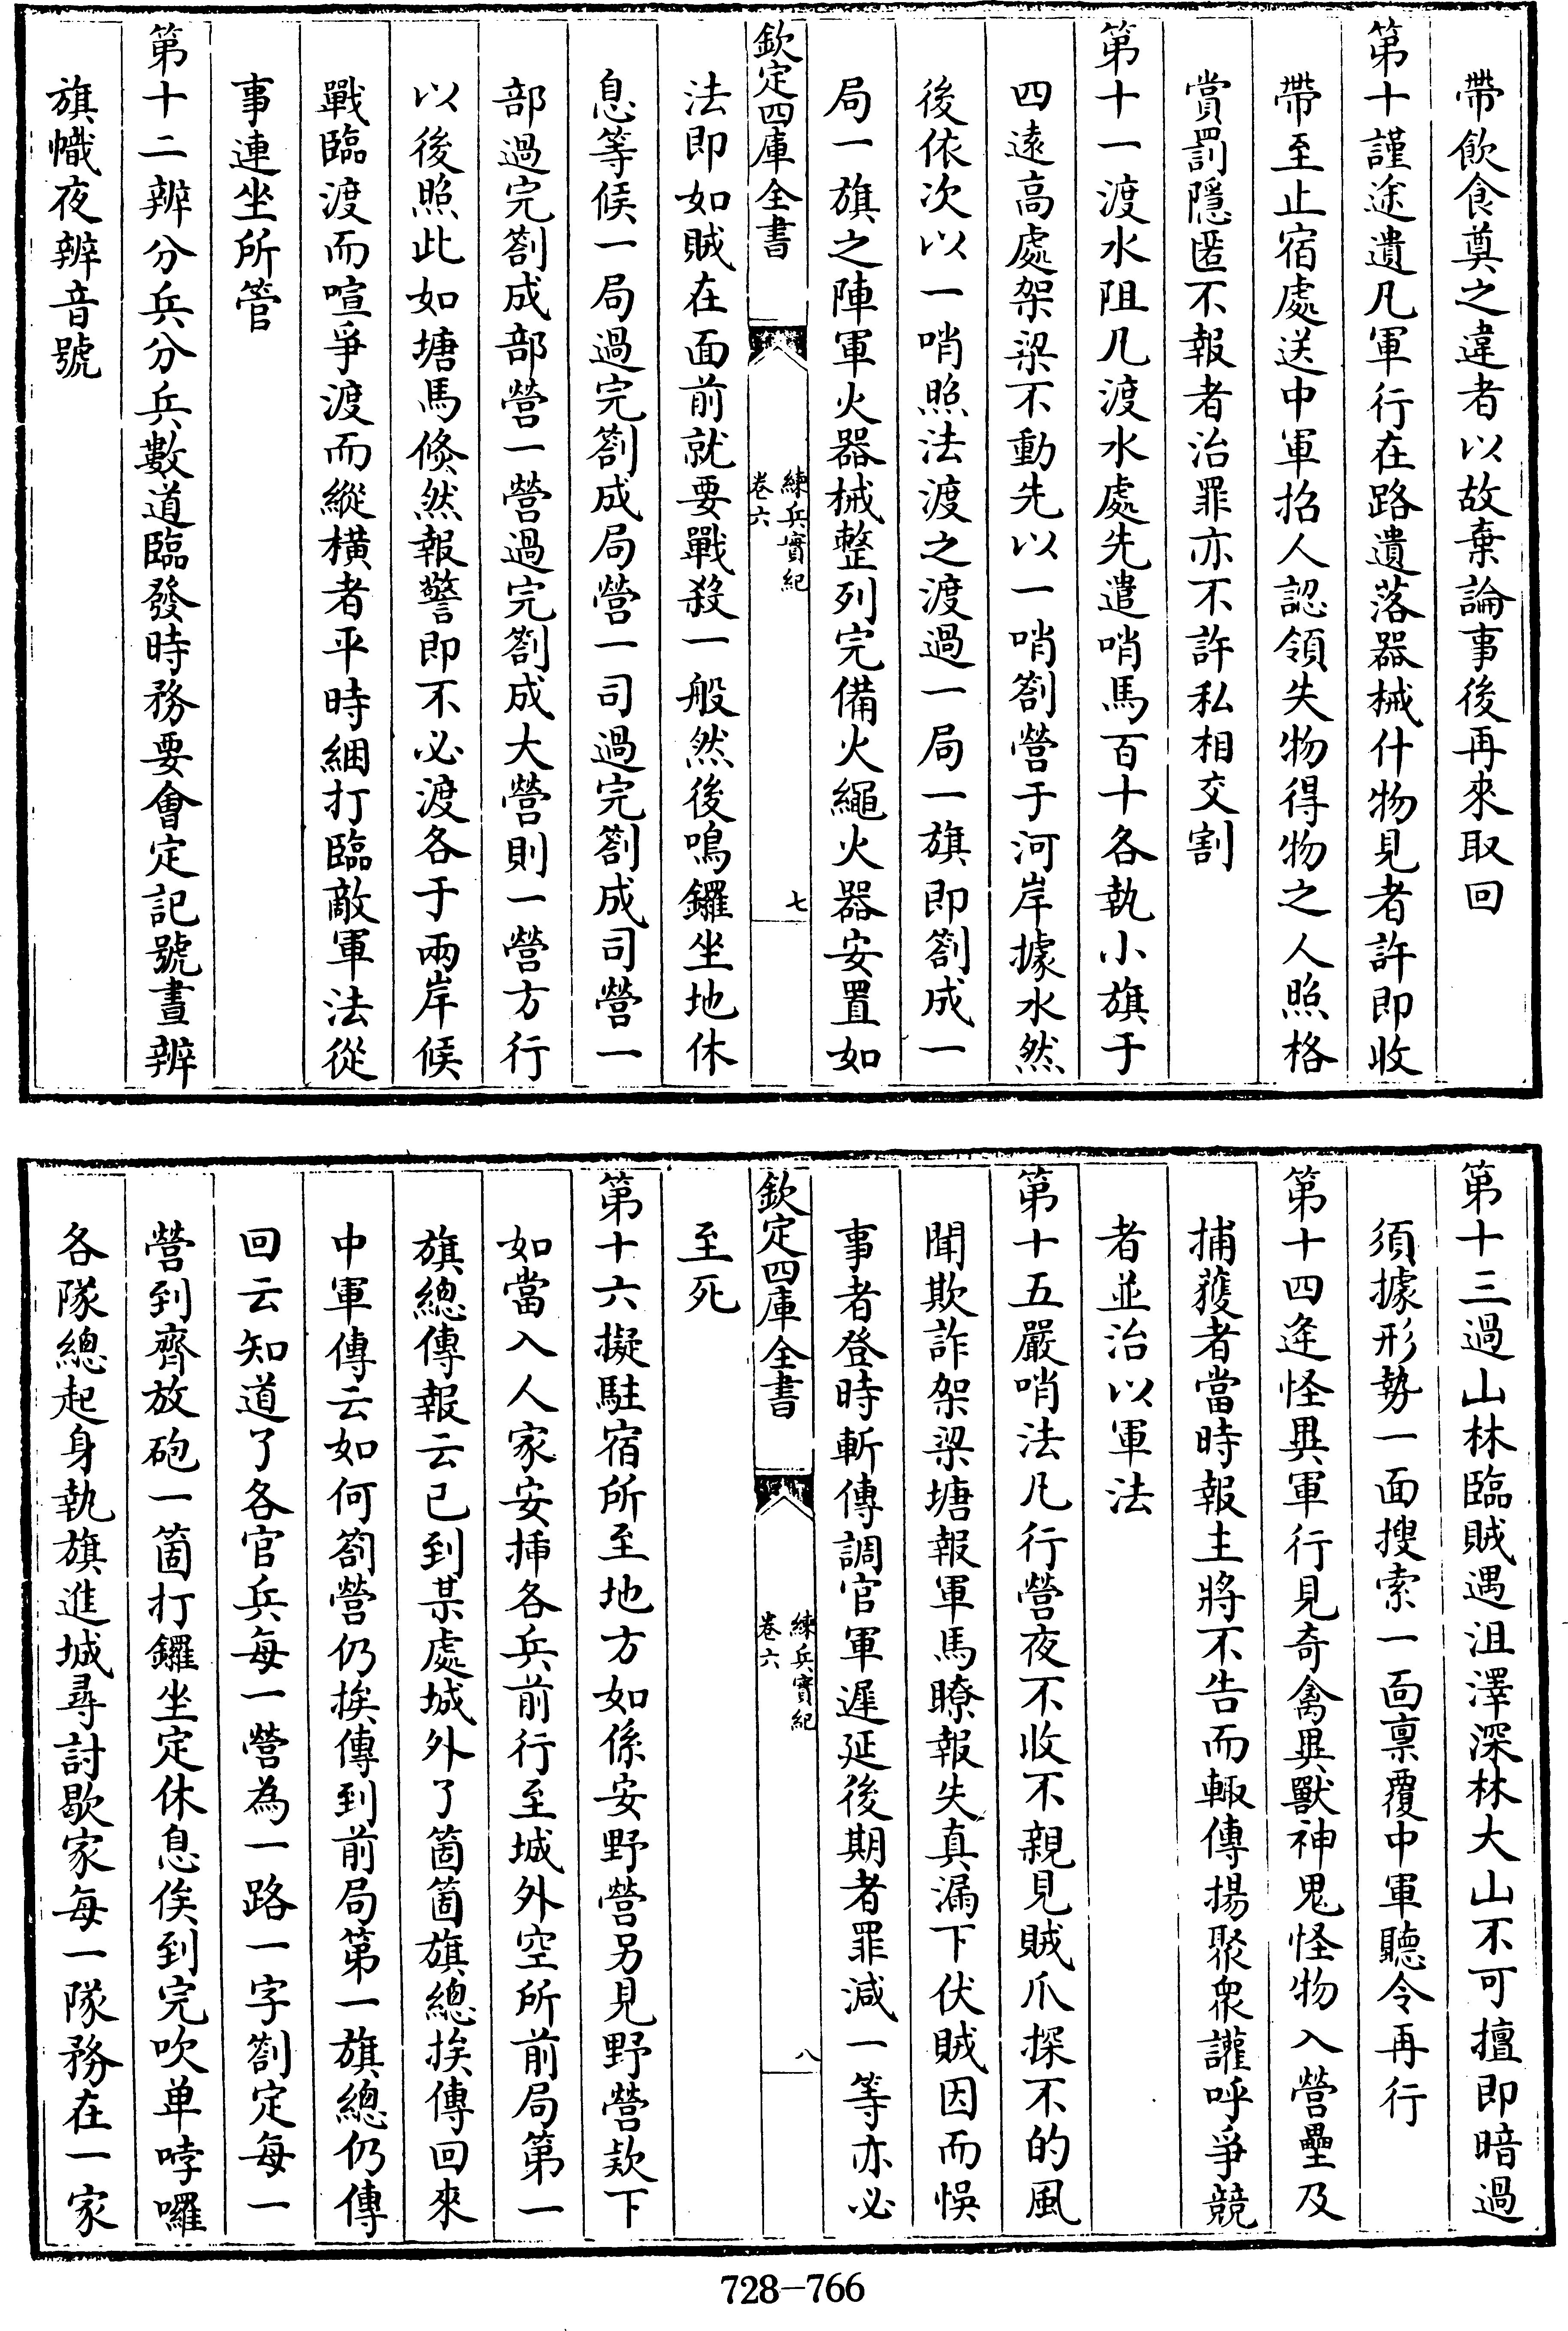 帶飲食奠之違者以故棄論事後再來取回
第十謹途遺凡軍行在路遺落器械什物見者許即收
帶至止宿處送中軍招人認領失物得物之人照格
賞罰隱匿不報者治罪亦不許私相交割
第十一渡水阻凡渡水處先遣哨馬百十各執小旗于
四遠高處架梁不動先以一哨劄營于河岸據水然
後依次以一哨照法渡之渡過一局一旗即劄成一
局一旗之陣軍火器械整列完備火繩火器安置如
欽定四庫全書
練兵實紀
卷六
七
法即如賊在面前就要戰殺一般然後鳴鑼坐地休
息等候一局過完劄成局營一司過完劄成司營一
部過完劄成部營一營過完劄成大營則一營方行
以後照此如塘馬倐然報警即不必渡各于兩岸候
戰臨渡而喧爭渡而縱橫者平時綑打臨敵軍法從
事連坐所管
第十二辨分兵分兵數道臨發時務要會定記號晝辨
旗幟夜辨音號
第十三過山林臨賊遇沮澤深林大山不可擅即暗過
須據形勢一面搜索一面禀覆中軍聽令再行
第十四逢怪異軍行見奇禽異獸神鬼怪物入營壘及
捕獲者當時報主將不告而輙傳揚聚衆讙呼爭競
者並治以軍法
第十五嚴哨法凡行營夜不收不親見賊爪探不的風
聞欺詐架梁塘報軍馬瞭報失真漏下伏賊因而悞
事者登時斬傳調官軍遲延後期者罪減一等亦必
欽定四庫全書
練兵實紀
卷六
八
至死
第十六擬駐宿所至地方如係安野營另見野營欵下
如當入人家安揷各兵前行至城外空所前局第一
旗總傳報云已到某處城外了箇箇旗總挨傳回來
中軍傳云如何劄營仍挨傳到前局第一旗總仍傳
回云知道了各官兵每一營為一路一字劄定每一
營到齊放砲一箇打鑼坐定休息俟到完吹单哱囉
各隊總起身執旗進城尋討歇家每一隊務在一家
728-766